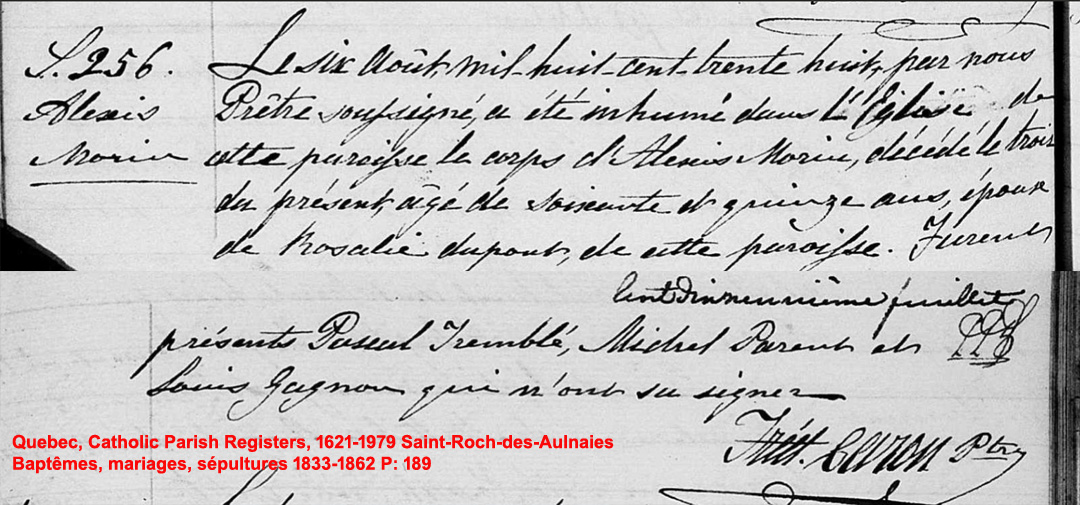 S. 256.
Alexis
Morin
Le six Août mil-huit-cent-trente huit, par nous
Prêtre soussigné, a été inhumé dans l'Eglise de
cette paroisse le corps d'Alexis Morin, décédé le trois
du présent, âgé de soixante et quinze ans, époux
de Rosalie dupont, de cette paroisse. Furent
Cent dixneuvième feuillet
présents Pascal Tremblé, Michel Parent et
Louis Gagnon qui n'ont su signer
Quebec, Catholic Parish Registers, 1621-1979 Saint-Roch-des-Aulnaies
Baptêmes, mariages, sépultures 1833-1862 P: 189
Ptre